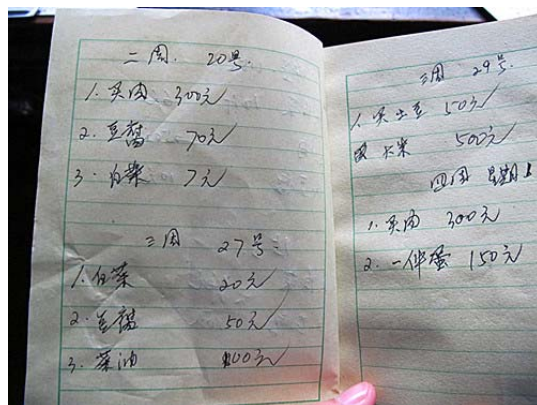 二周. 20号.
1. 买肉 300元
2. 豆腐 70元
3. 白菜 7元
三周 27号
1. 白菜 20元
2. 豆腐 50元
3. 菜油 100元
三周 29号.
1. 买土豆 50元
大米 500元
四周 星期
1. 买肉 300元
2. 一件蛋 150元